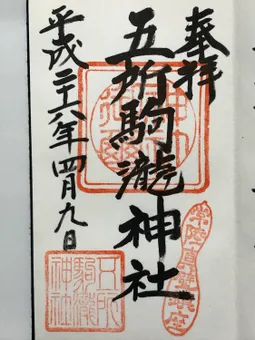 奉拝
五所駒瀧神社
平成二十六年四月九日
五所
駒瀧
神社